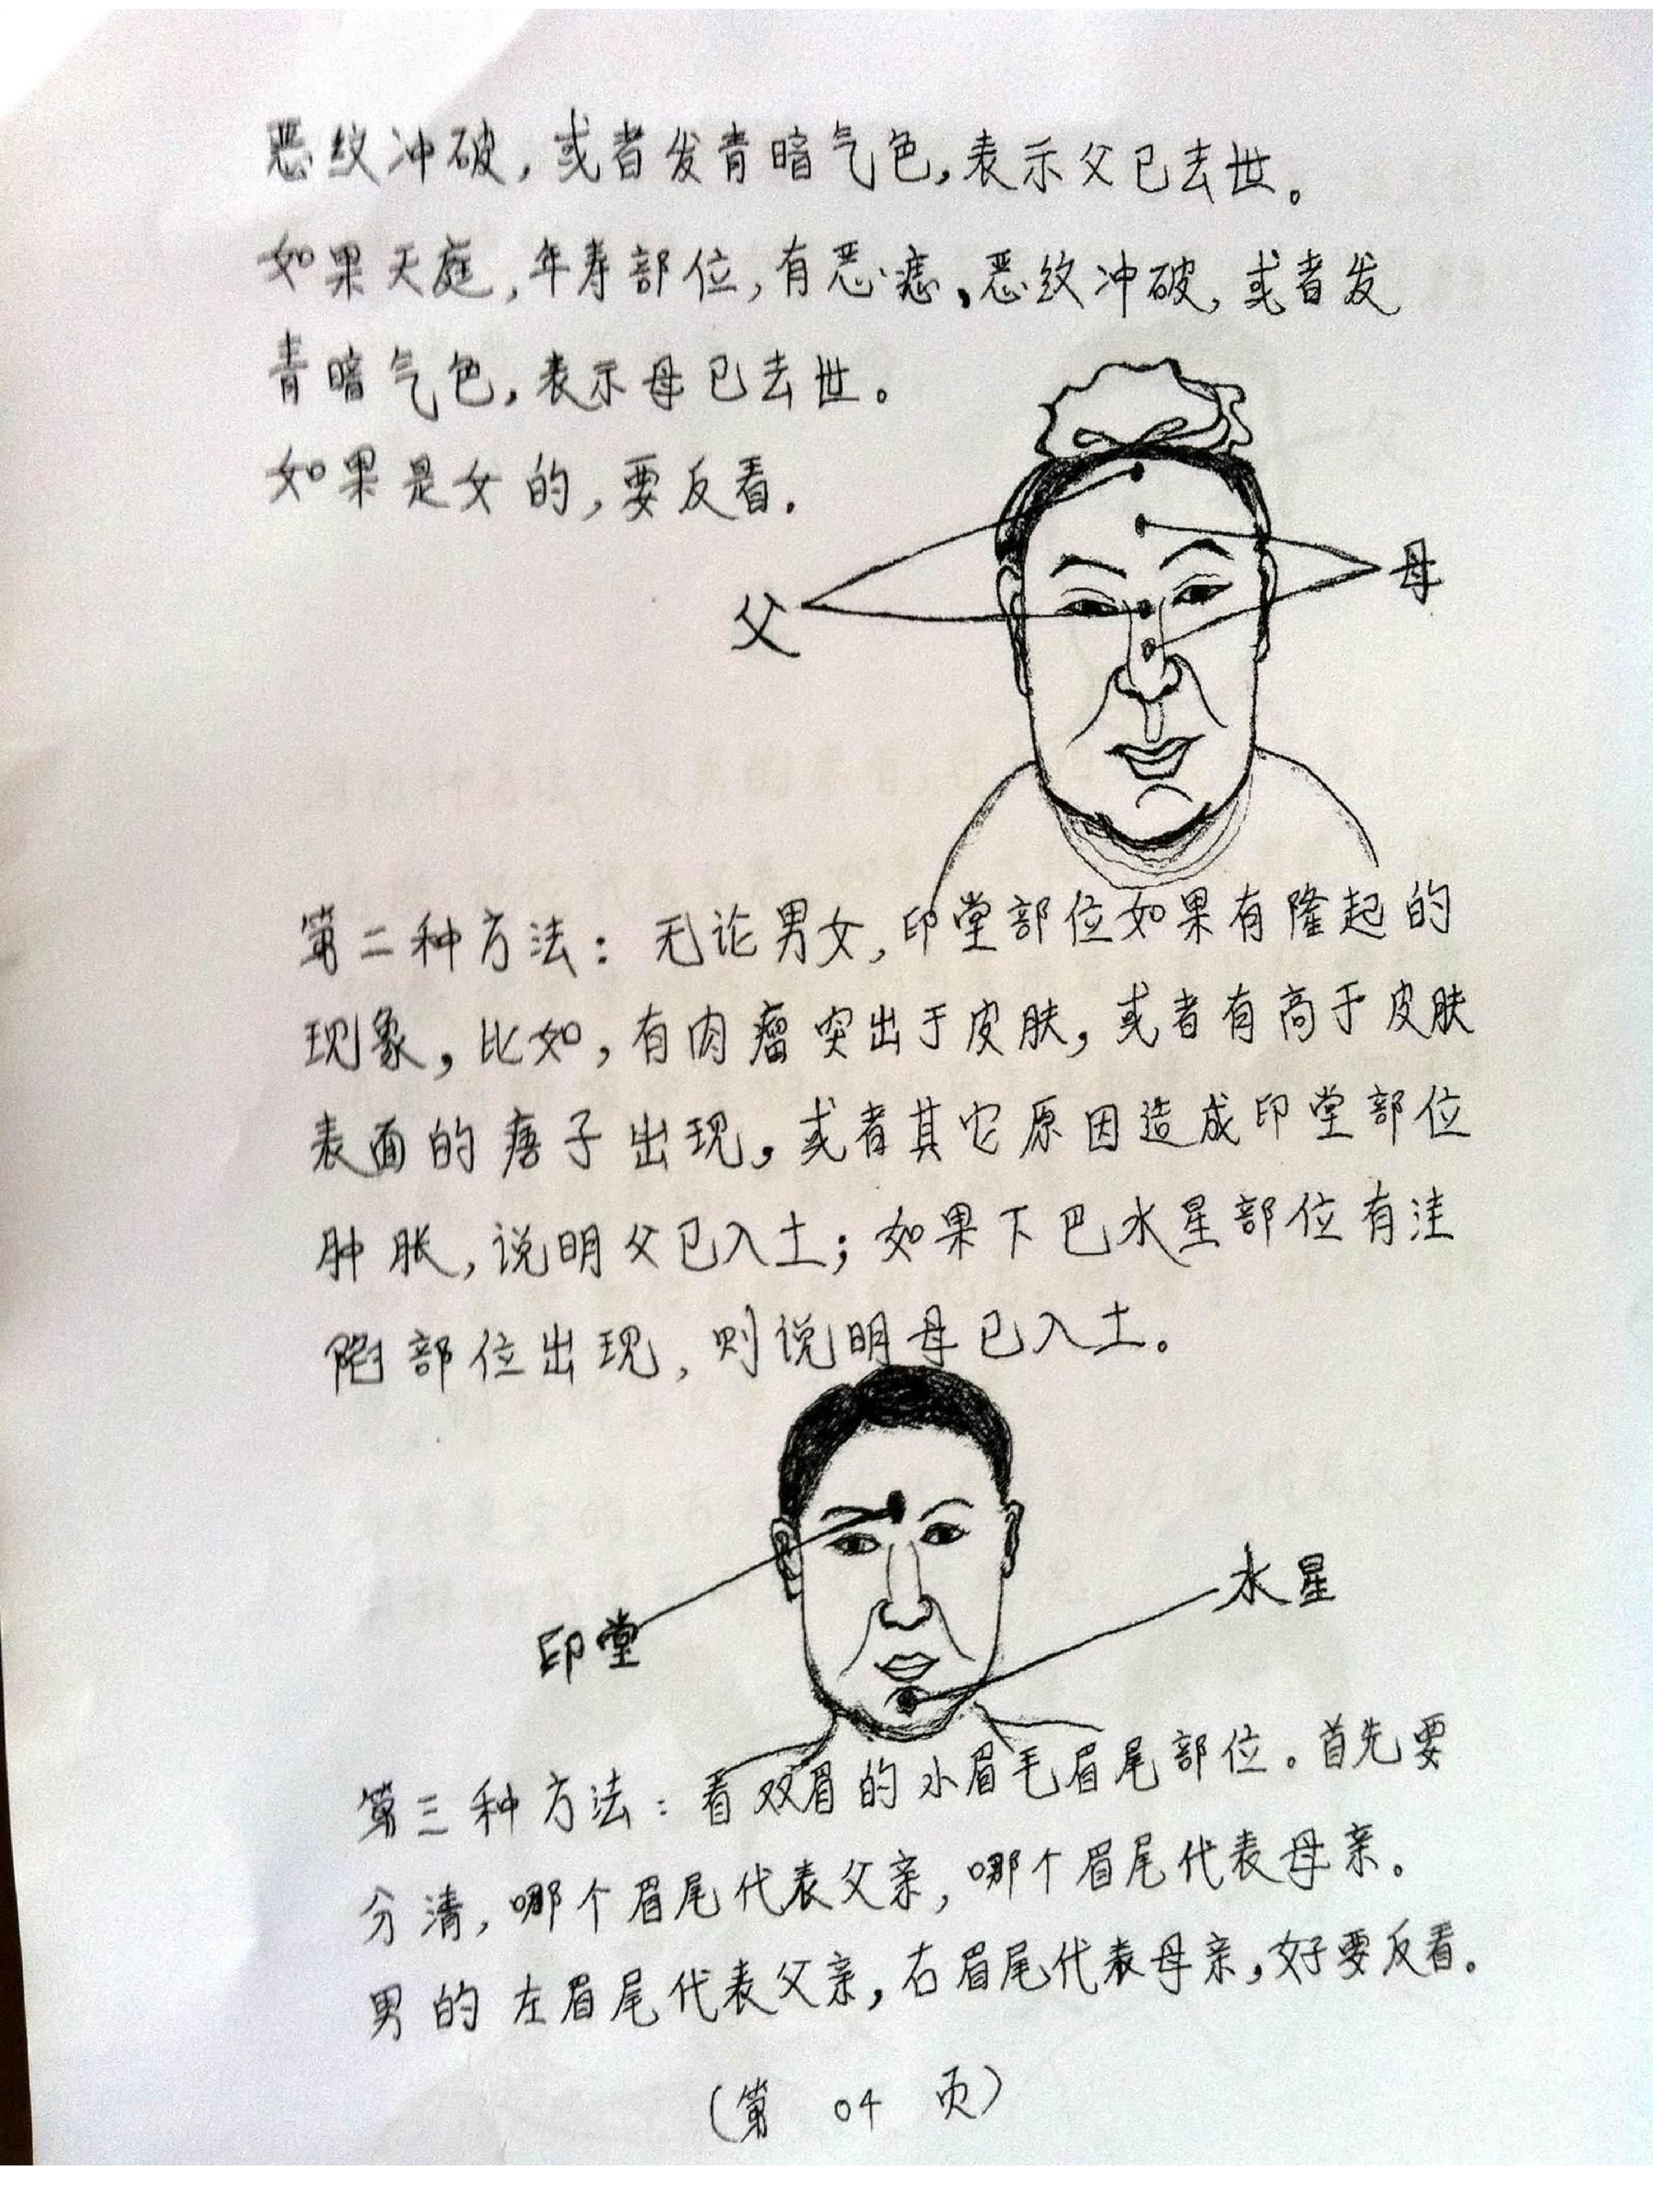 恶纹冲破,或者发青暗气色,表示父已去世。
如果天庭,年寿部位,有恶痣,恶纹冲破,或者发
青暗气色,表示母已去世。
如果是女的,要反看.
父
母
第二种方法:无论男女,印堂部位如果有隆起的
现象,比如,有肉瘤突出于皮肤,或者有高于皮肤
表面的痦子出现,或者其它原因造成印堂部位
肿胀,说明父已入土;如果下巴水星部位有洼
陷部位出现,则说明母已入土。
印堂
水星
第三种方法:看双眉的小眉毛眉尾部位。首先要
分清,哪个眉尾代表父亲,哪个眉尾代表母亲。
男的左眉尾代表父亲,右眉尾代表母亲,好要反看.
(第 04 页)